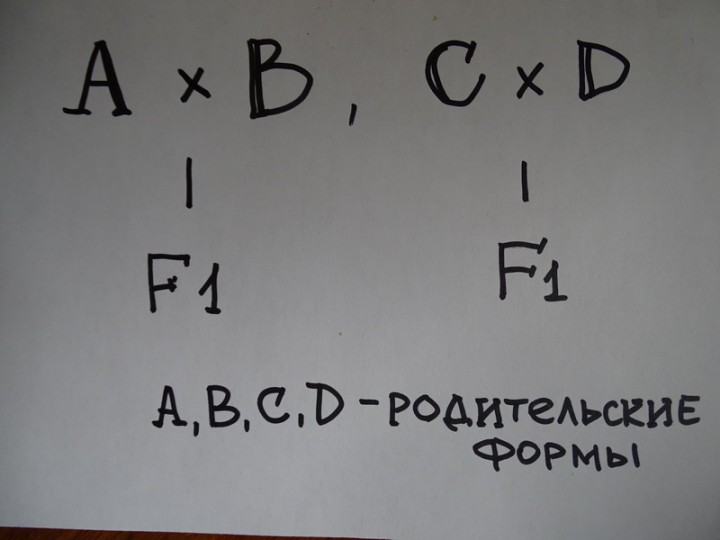 A x B, C x D
F1 F1
A, B, C, D - родительские
формы